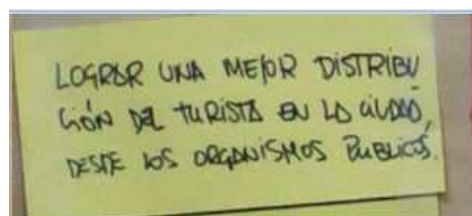 LOGRAR UNA MEJOR DISTRIBU
CIÓN DEL TURISTA EN LA CIUDAD,
DESDE LOS ORGANISMOS PUBLICOS.